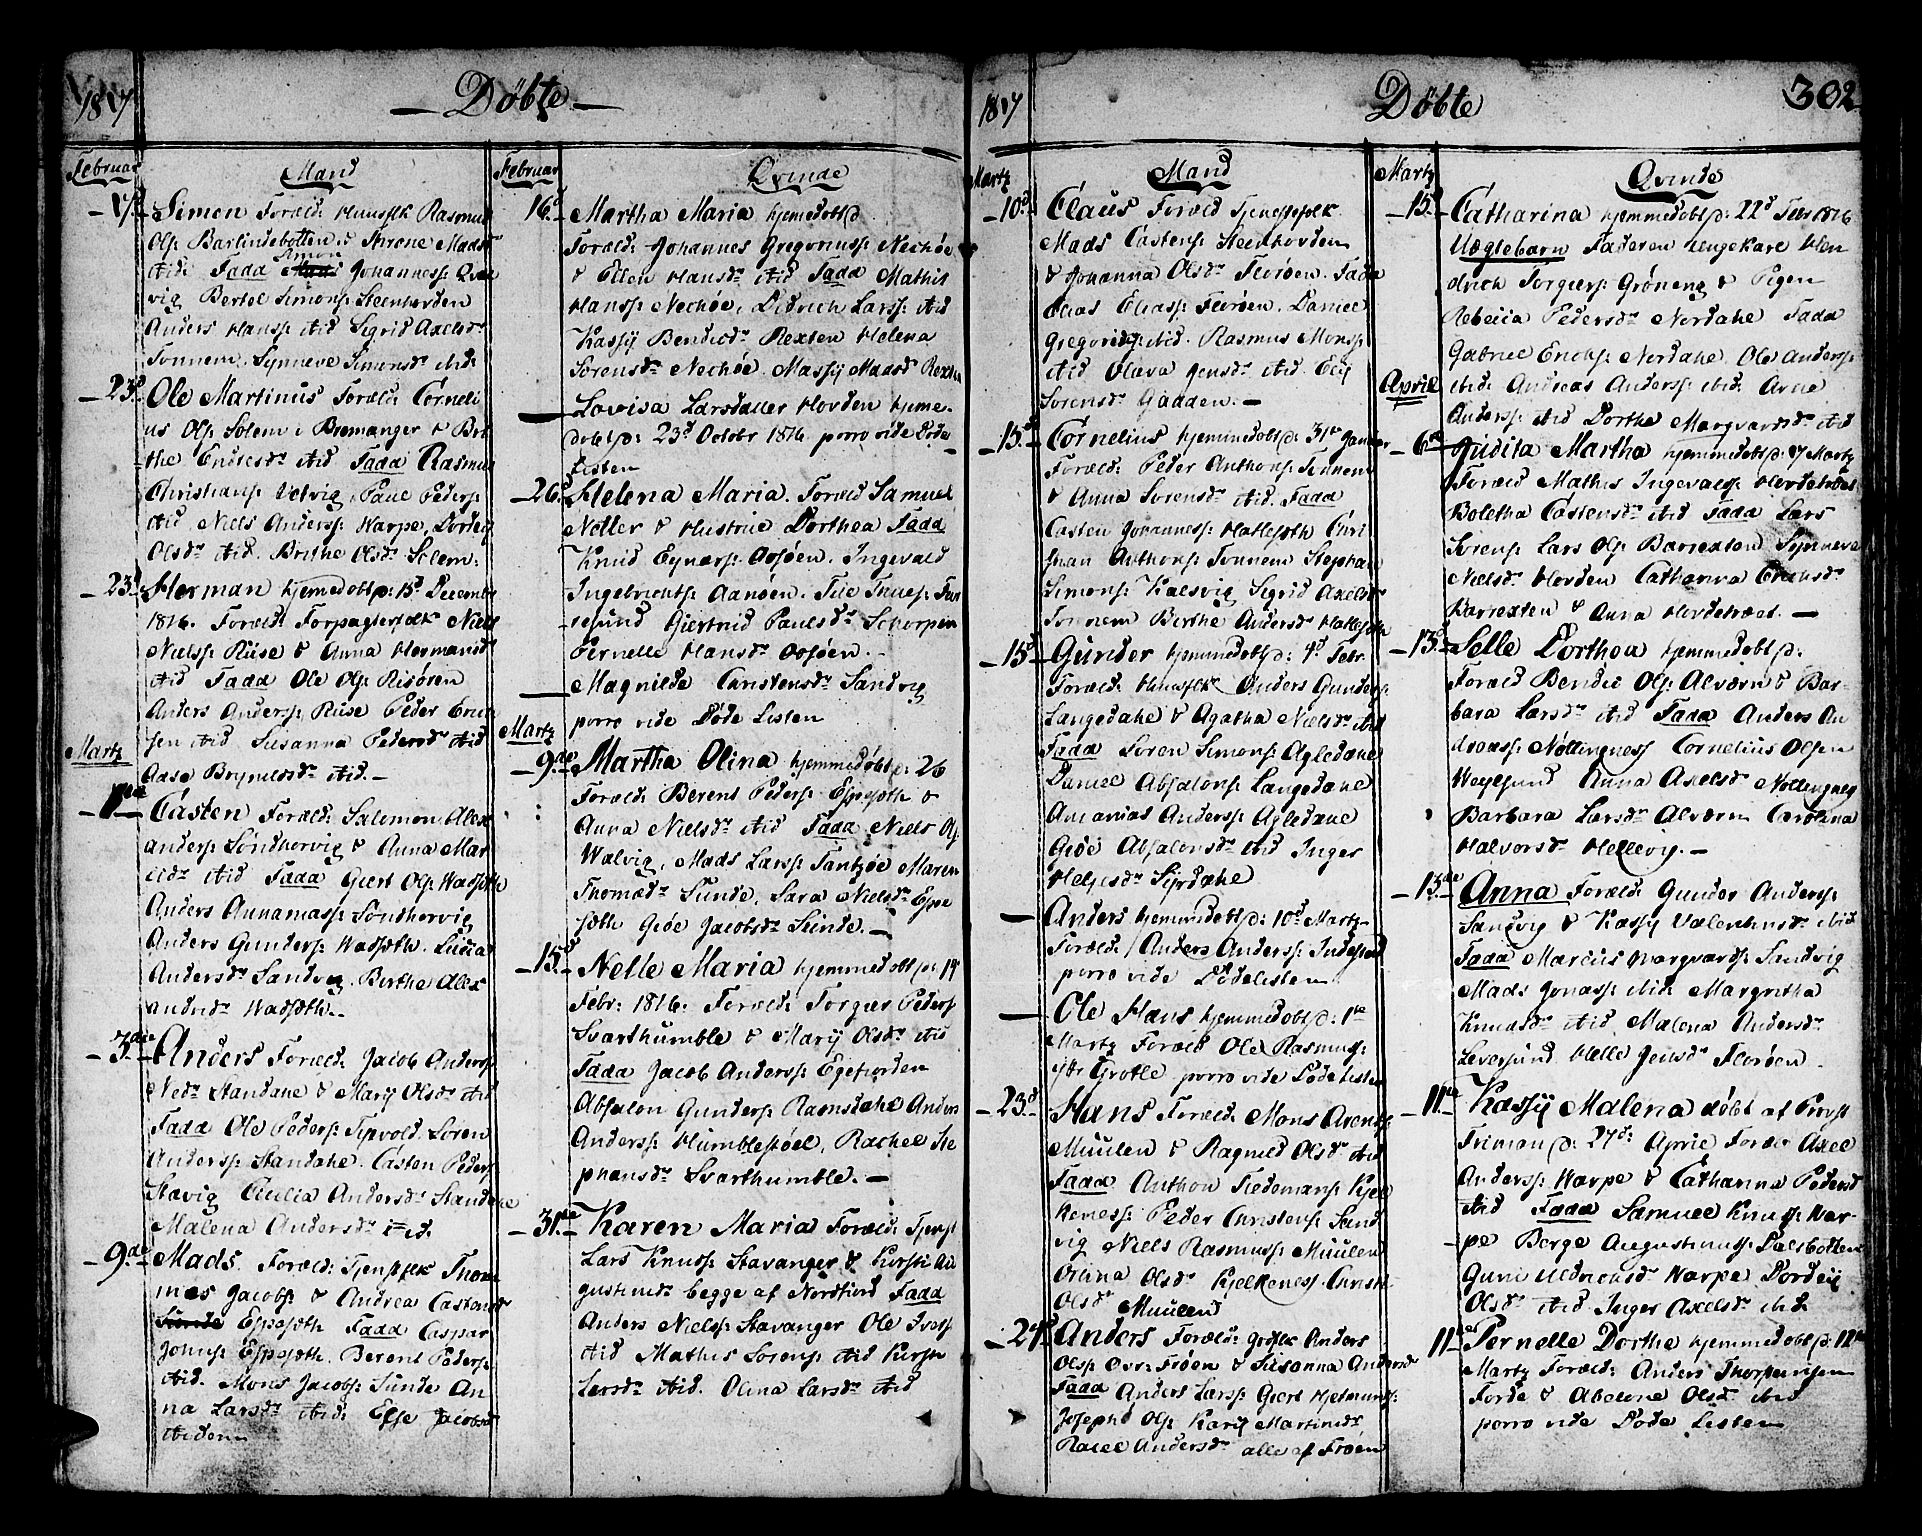 1817
— Döbte —
Februar
Mand
Simon Foræld: Huusflk Rasmus
Ols: Barlindbotten & Sirene Madsd
ibid: Fadd Simon Johanness: Qval
vig Bertel Simons: Steenhovden
Anders Hanss: ibid Sigrid Axelsd
Tonnem. Synneve Simonsd: ibid:
23d Ole Martinus Foræld: Corneli
us Ols: Solem i Bremanger & Bri
the Endresdr ibid Fadd Rasmus
Christians: Vetvig, Paul Peders:
ibid, Niels Anders: Harpe, Dordej
Olsdr ibid. Brithe Olsdr Solem:
23d Herman hjemedobt p: 15d Decembr
1816. Foræld: Forpagterfolk Niels
Nielss: Ruse & Anna Hermansd
ibid Fadd Ole Ols: Risören
Anders Anders: Ruse Peder Erik
sen ibid, Susanna Pedersdr ibid
Aase Brynelsdr ibid.—
Martz
Casten Foræld: Salomon Alex
anders: Söndhervig & Anna Mar
ibid Fadd Giert Ols: Wadsöth
Anders Annamass: Söndhervig
Anders Gunders: Wadsöth. Lucia
Andersdr Sandvig. Birthe Alex
andrsdr Wadsöth..
3die Anders Foræld: Jacob Anders:
Nedr Standahl & Marij Olsdr ibid
Fadd Ole Peders: Tipvold. Soren
Anders: Standahl. Casten Peders:
Stavig Cecilia Andersdr Standahl
Malena Andersdr ibid.
9de Mads. Foræld: Tjenstflk Thom
mas Jacobs: & Andrea Castensd
Espesöth Fadd Caspar
Johns: Espesöth. Berent Peders:
ibid. Mons Jacobs: Sunde An
na Larsdr ibid: Else Jacobsd
ibidem
Februar
Qvinde
16d Martha Maria hjemedobt p
Foræld: Johannes Gregorius: Nechöe
& Ellen Hansdr ibid Fadd Mathis
Hanss: Nechöe, Didrich Larss: ibid
Kassij Bendicsdr Rexten Helena
Sorensdr Nechöe. Massij Madsd Rexten
— Lovisa Larsdatter Hovden hjeme-
dobt p: 23d Octobr 1816 porro vide Döde
Listen
26d Helena Maria. Foræld Samuel
Noller & Hustrue Dorthea Fadd
Knud Eynars: Aasöen. Ingevald
Ingebrichts: Aanöen. Tue Trues: Fur
resund Giertrud Paulsdr Schorpen
Pernelle Hansdr Aasöen.—
— Magnilde Christensdr Sandvig
porro vide Döde Listen
Martz
9de Martha Olina hjemmedöbt p: 26
Foræld: Berent Peders: Espesöth &
Anna Nielsdr ibid Fadd Niels Ols
Walvig, Mads Larss: Tantzöe Maren
Thomædr Sunde, Sara Nielsdr Espe
söth Giöe Jacobsdr Sunde.—
15d Nelle Maria hjemmedobt p: 14
Febr: 1816. Foræld: Torgier Peders
Svarthumble & Marij Olsdr ibid
Fadd Jacob Anders: Egefiorden
Absalon Gunders: Ramsdahl Anders
Anderss: Humblestöel, Rachel Ste
phansdr Svarthumble.—
31te Karen Maria Foræld: Tjenst
Lars Knuss: Stavanger & Kirsti Au
gustinsdr begge af Nordfiord Fadd
Anders Nielss: Stavanger Ole Ivers
ibid Mathis Sorens: ibid Kirsti
Larsdr ibid. Olina Larsdr ibid
1817
Döbte
302
Martz
Mand
10d Claus Foræld Tjenestefolk
Mads Castens: Steenhovden
& Johanna Olsdr Floröen. Fadd
Elias Eliass: Floröen. Daniel
Gregorius: ibid. Rasmus Mons:
ibid Olava Jensdr ibid. Elij
Sorensdr Gadden.—
15d Cornelius hjemmedobt p: 31te Januar
Foræld: Peder Anthons: Tonnem
& Anna Sorensdr ibid. Fadd
Casten Johannes: Hatlesöth Chri
stian Anthons: Tonnem Stephan
Simons: Kalsvig Sigrid Axelsdr
Tonnem Birthe Andersdr Hatlesöth
15d Gunder hjemmedobt p: 4d Febr.
Foræld: Huusflk Anders Gunders:
Langedahl & Agatha Nielsdr ibid
Fadd Soren Simons: Agledahl
Daniel Absalons: Langedahl
Ananias Anders: Agledahl
Giöe Absalonsdr ibid Inger
Helgesdr Syrdahl.
— Anders hjemmedobt p: 10d Martz
Foræld: Anders Anders: Indrestrand
porro vide Dödelisten
— Ole Hans hjemmedobt p: 1te
Martz Foræld Ole Rasmus:
ytr Grotle porro vide Döde Listen
23d Hans Foræld: Mons Arentz
Muulen & Ragnild Olsdr ibid
Fadd Anthon Tiedemans: Kjel
kenes: Peder Christens: Sand
vig Niels Rasmus: Muulen
Olina Olsdr Kjelkenes: Christi
Olsdr Muulen
24d Anders Foræld: Grdflk Anders
Ols: Ovr: Fröen & Susanna Andersdr
Fadd Anders Lars: Giert Hjelmuns:
Joseph Ols: Karij Martinsdr
Rachel Andersdr alle af Fröen
Martz
Qvinde
15d Catharina hjemmedobt p: 22d Febr 1816
Uægtebarn Faderen Ungekarl Hen
drich Torgiers: Gröneng & Pigen
Rebecca Pedersdr Nordahl Fadd
Gabriel Erichs: Nordahl. Ole Anders:
ibid: Andreas Anders: ibid. Arne
Anders: ibid Dorthe Margvardsdr ibid
April
6te Judita Martha hjemmedobt p: 7 Martz
Foræld Mathis Ingevals: Hovdetræet
Boletha Castensdr ibid Fadd Lars
Sorens: Lars Ols: Barrexten Synneva
Nielsdr Hovden Catharina Ericksdr
Barrexten & Anna Hovdetræet.—
13d Selle Dorthea hjemmedobt p:
Foræld Bendic Ols: Alværn & Bar-
bara Larsdr ibid Fadd Anders An
dreas: Nöttingnes: Cornelius Olsen
Weyesund Anna Axelsdr Nöttingnes
Barbara Larsdr Alværn Carolina
Halvorsdr Hellevig.—
13de Anna Foræld: Gunder Anders:
Sandvig & Kassij Valentinsdr ibid
Fadd Marcus Margvards: Sandvig
Mads Jonass: ibid: Margretha
Knudsdr ibid, Malena Andersdr
Leversund Helle Jensdr Floröen.
11te Kassij Malena döbt af Provst
Friman p: 27d: April Foræld Axel
Anders: Harpe & Catharina Pedersd
ibid Fadd Samuel Knuss: Har-
pe Berge Augustinus: Dalsbotten
Guni Andreasdr Harpe Dordeij
Olsdr ibid Inger Axelsdr ibid
11te Pernelle Dorthe hjemmedobt p: 12te
Martz Foræld: Anders Thorstensen
Förde & Abelone Olsdr ibid
porro vide Döde Listen